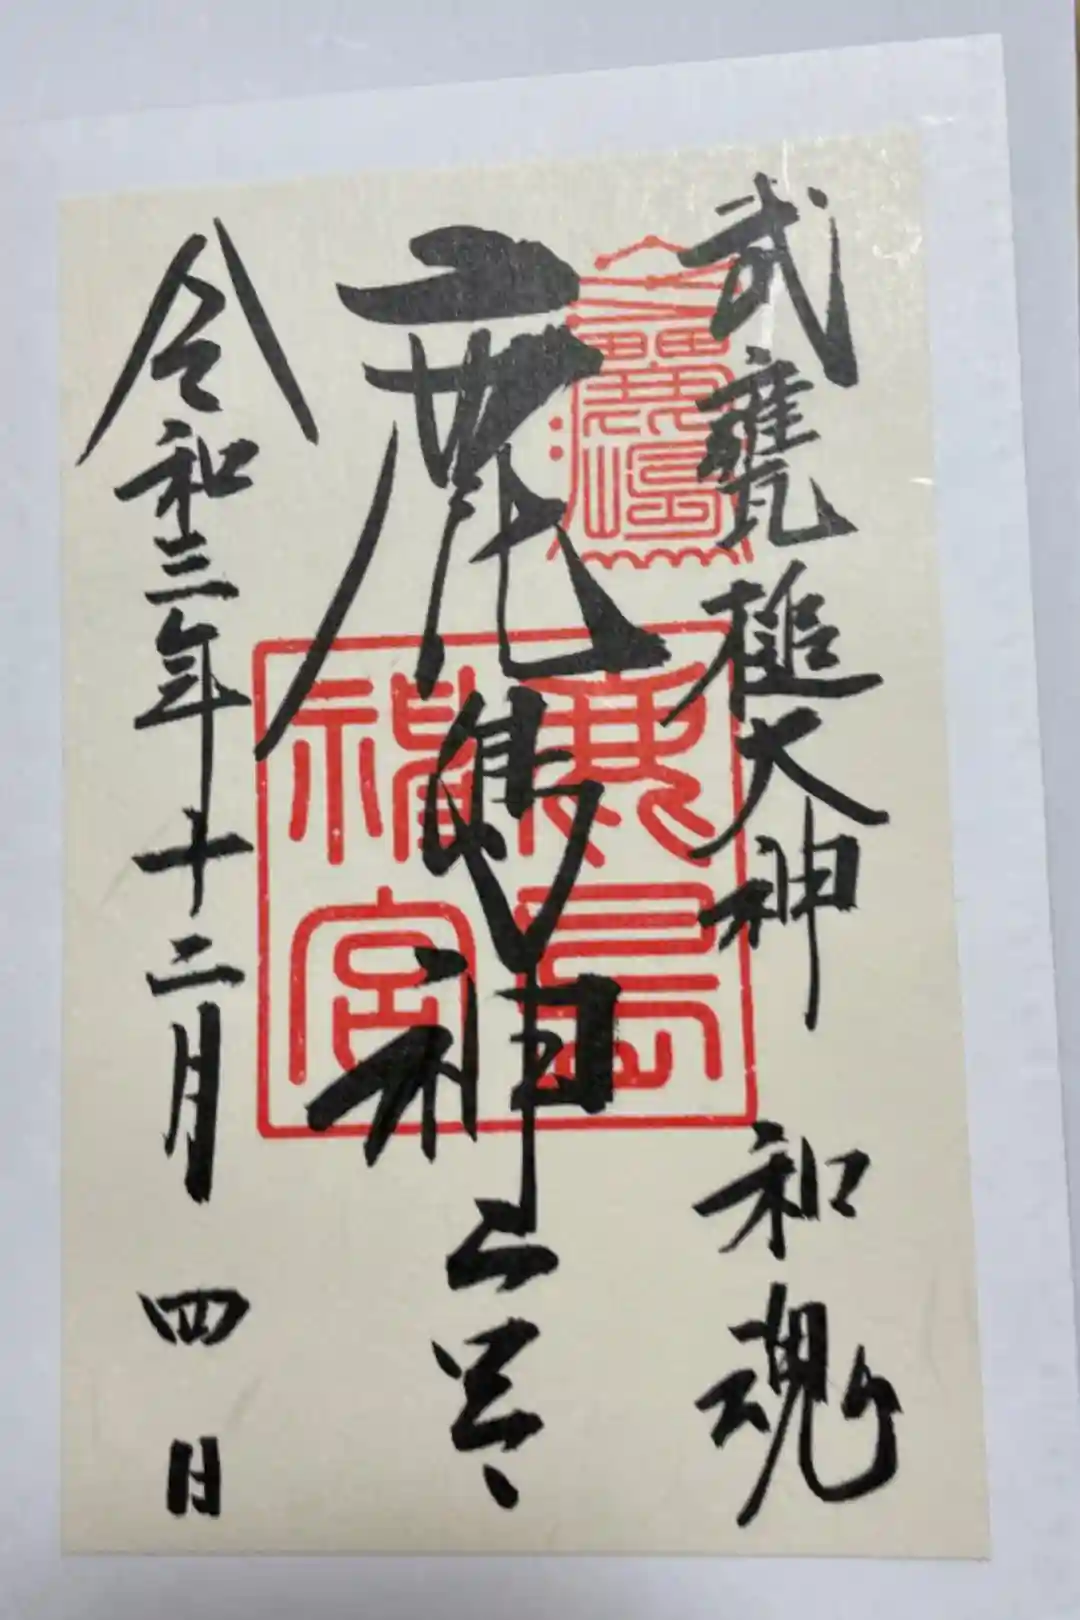 武甕槌大神 和魂
鹿嶋神宮
令和三年十二月四日
鹿嶋
鹿島神宮